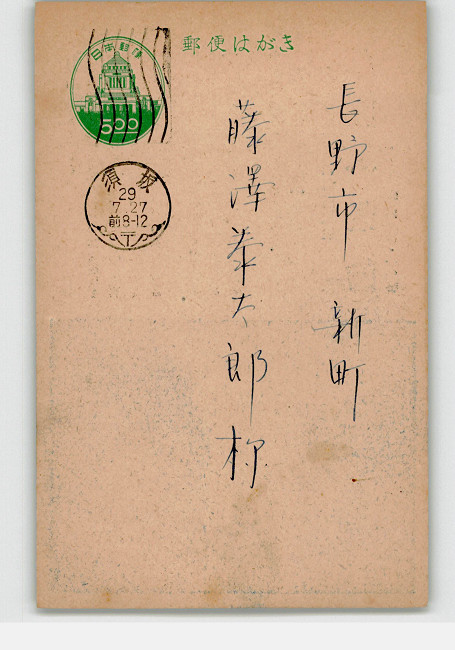 郵便はがき
日本郵便
500
須坂
29
7.27
前8-12
長野市 新町
藤澤泰太郎様